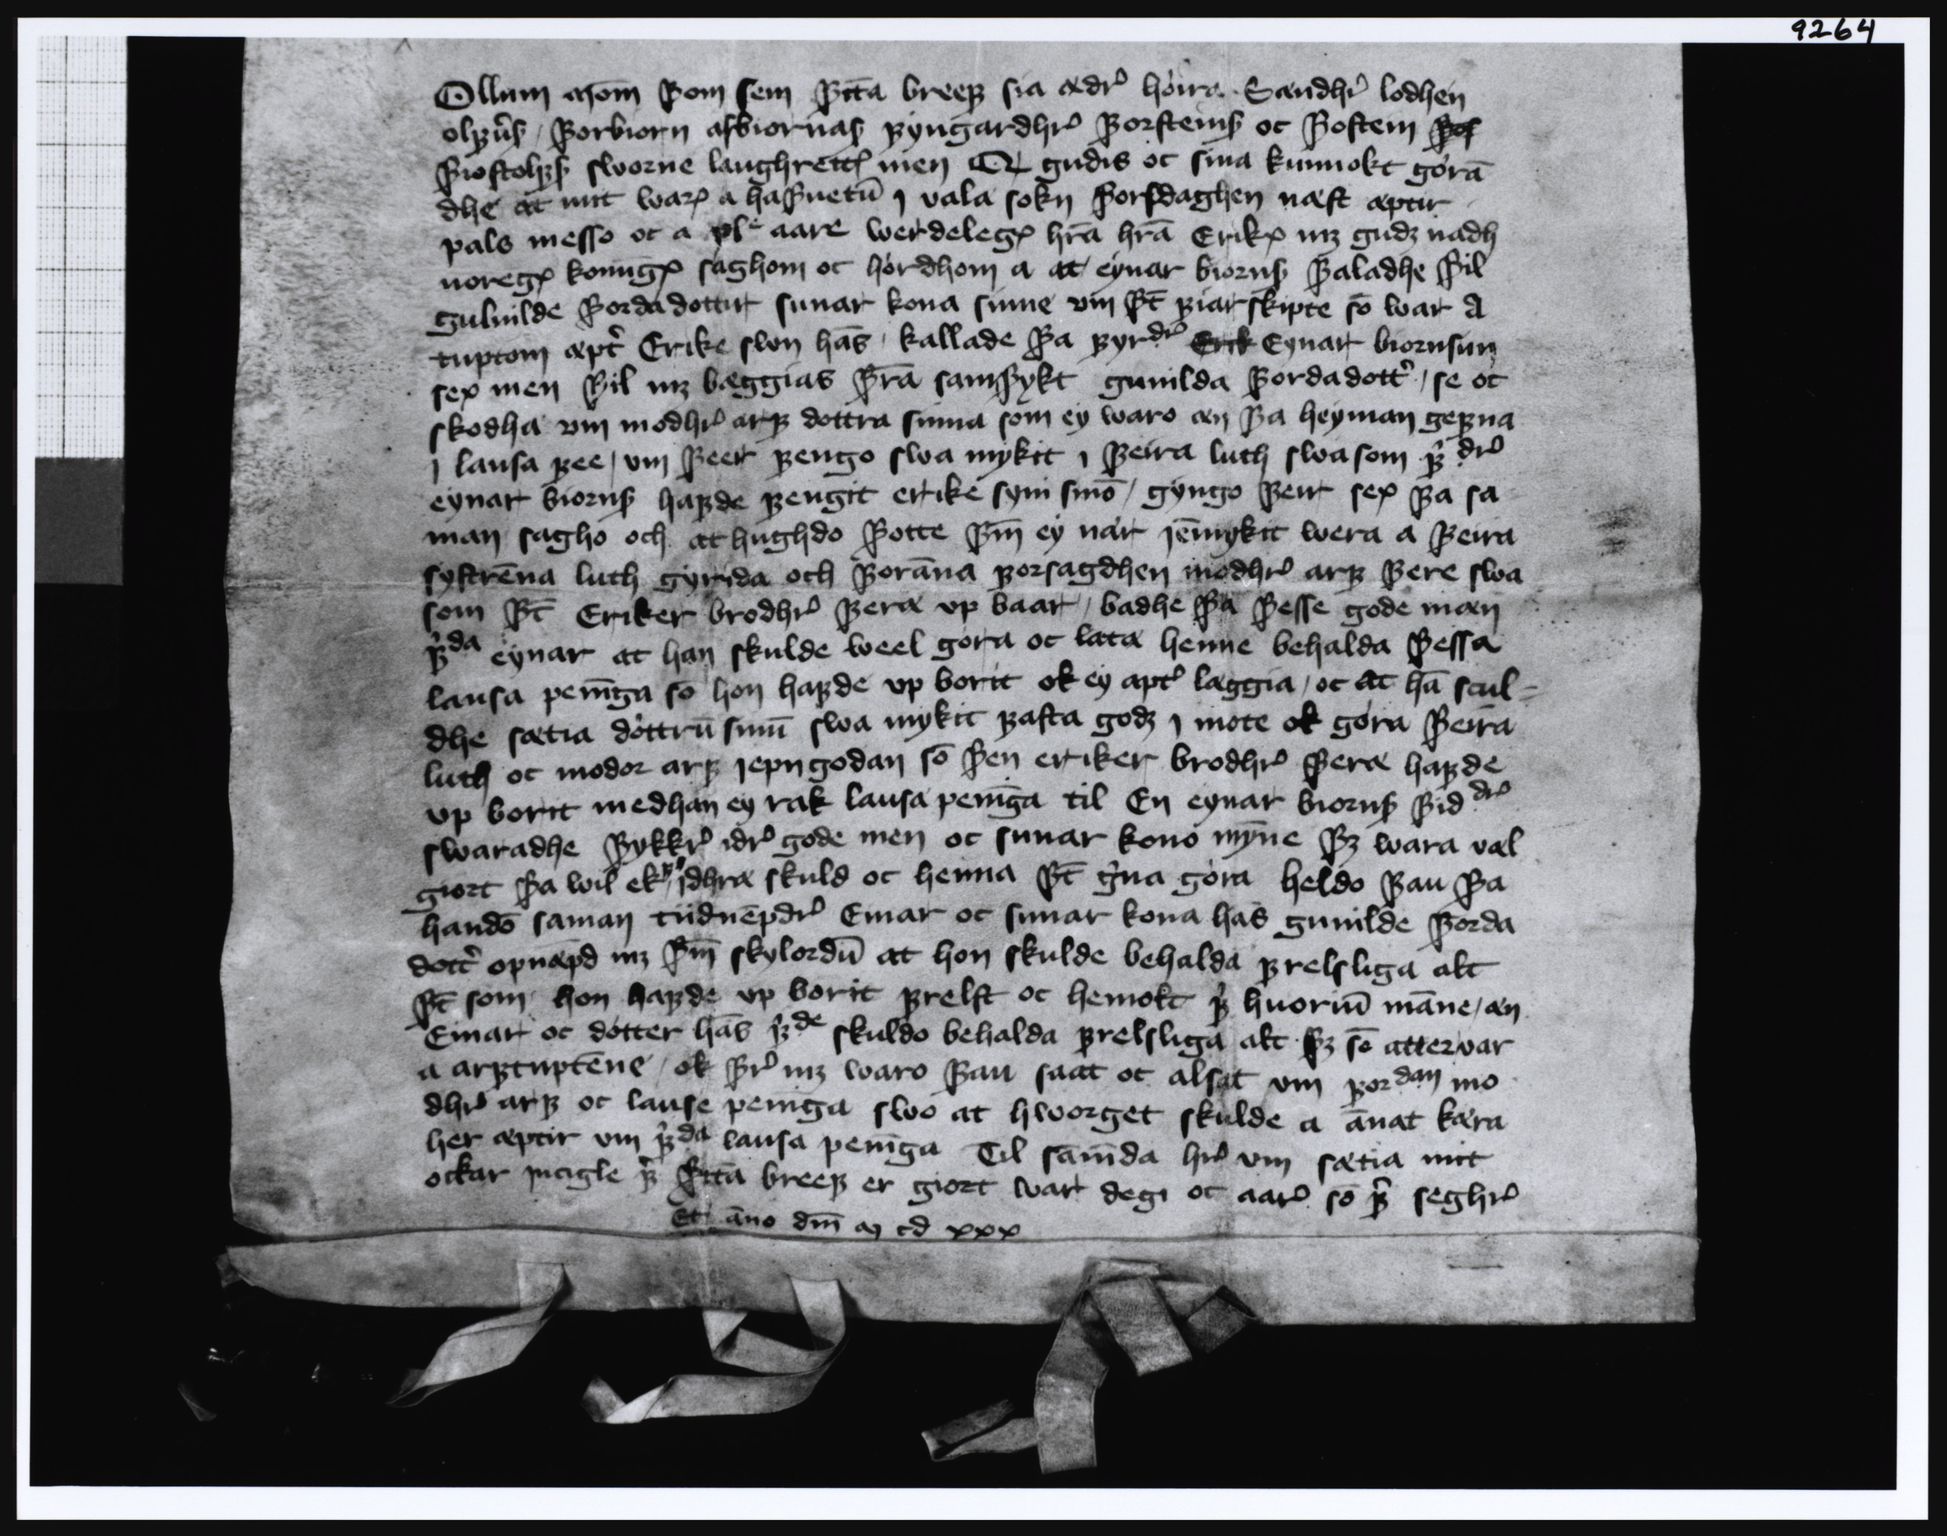 9264
Ollum mōm þom sem þttā breeƿ sia ædr̛ hóira Sændhr̛ lodhen
olƿūs̛ þorbiorn asbiornas̛ ƿyngardhr̛ þorsteins̛ oc þostein
þiostolƿs̛ sworne laughrettꝭ men Q gudis oc sina kunnokt górā
dhe at mit warꝭ a haþuetū j vala sokn þorsdaghen næst æptir
pals messo oc a xl aare werdelegꝭ hr̄a hr̄a Erikꝭ mꝫ gudꝫ nadh
noregꝭ konugꝭ saghom oc hórdhom a at eynar biorns̛ þaladhe þil
gulnilde þorda dottur sunar kona sinne vm þt̄ ƿiarskipte sō war A
tuptom æpt̛ Erike swn hās kallade þa ƿyrdr̛ Eynar biornsun
sex men þil mꝫ bæggias þr̄a samþykt gunilda þordadott̛ se oc
skodha vm modhr̛ arƿ dottra sinna som ey waro æn þa heyman geƿna
j lausa ƿee vm þeer ƿengo swa mykit j þeira luth swa som ƿ̛dr̛
eynar biorns̛ haƿde ƿengit erike syni sinō gyngo þeir sex þa sa
man sagho och at hughdo þotte þm̄ ey nár jēmykit wera a þeira
systrēna luth gyrida och þorāna ƿorsagdhen módhr̛ arƿ þere swa
som þt̄ Eriker brodhr̛ þera vp baar badhe þa þesse gode mæn
ƿ̛da eynar at han skulde weel gora oc lata henne behalda þessa
lausa penīga sō hon haƿde vp borit ok ey apt̛ læggia oc at hā scul=
dhe sætia dóttrū sinū swa mykit ƿasta godꝫ j mote ok góra þeira
luth oc modor arƿ jepngodan sō þen eriker brodhr̛ þera haƿde
vp borit medhan ey rak lausa penīga til En eynar biorns̛ þiddr̛
swaradhe þykkr̛ idr̛ gode men oc sunar kono mȳne þꝫ wara væl
giort þa wil ek idhra skuld oc henna þt̄ g̛na góra heldo þau þa
handō saman tiidnēpdr̛ Einar oc sunar kona hās gunilde þorda
dott̛ opnæpd mꝫ þm̄ skylordū at hon skulde behalda ƿrelsliga alt
þt̄ som hon haƿde vp borit ƿrelst oc hemolt ƿ̛ huoriū māne æn
Einar oc dotter hās ƿ̛de skuldo behalda ƿrelsliga alt þꝫ sē atter var
a arƿtuptēne ok þr̛ mꝫ waro þau saat oc alsat vm ƿordan mo
dhr̛ arƿ oc lause penīga swo at hworget skulde a ānat kæra
her æptir vm ƿ̛da lausa penīga Til sānīda hr̛ vm sætia mit
ockar incigle ƿ̛ þttā breeƿ er giort war degi oc aar̛ sō ƿ̛ seghr̛
Et āno dm̄ m cd xxx